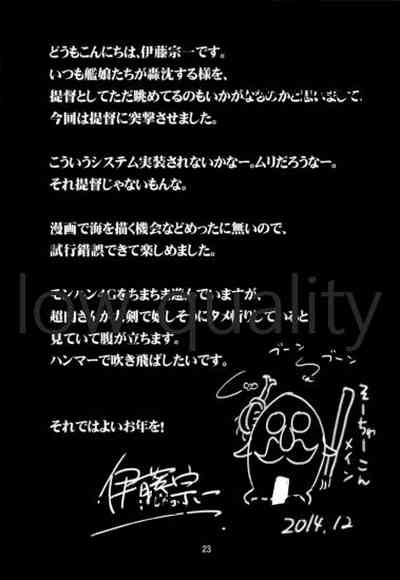 どうもこんにちは、伊藤宗一です。
いつも艦娘たちが轟沈する様を、
提督としてただ眺めてるのもいかがなものかと思いまして、
今回は提督に突撃させました。
こういうシステム実装されないかなー。ムリだろうなー。
それ提督じゃないもんな。
漫画で海を描く機会などめったに無いので、
試行錯誤できて楽しめました。
モンハン4Gをちまちま進んでいますが、
見ていて腹が立ちます。
ハンマーで吹き飛ばしたいです。
それではよいお年を!
ブーン
ブーン
メイン
伊藤宗一
2014.12
23
low quality